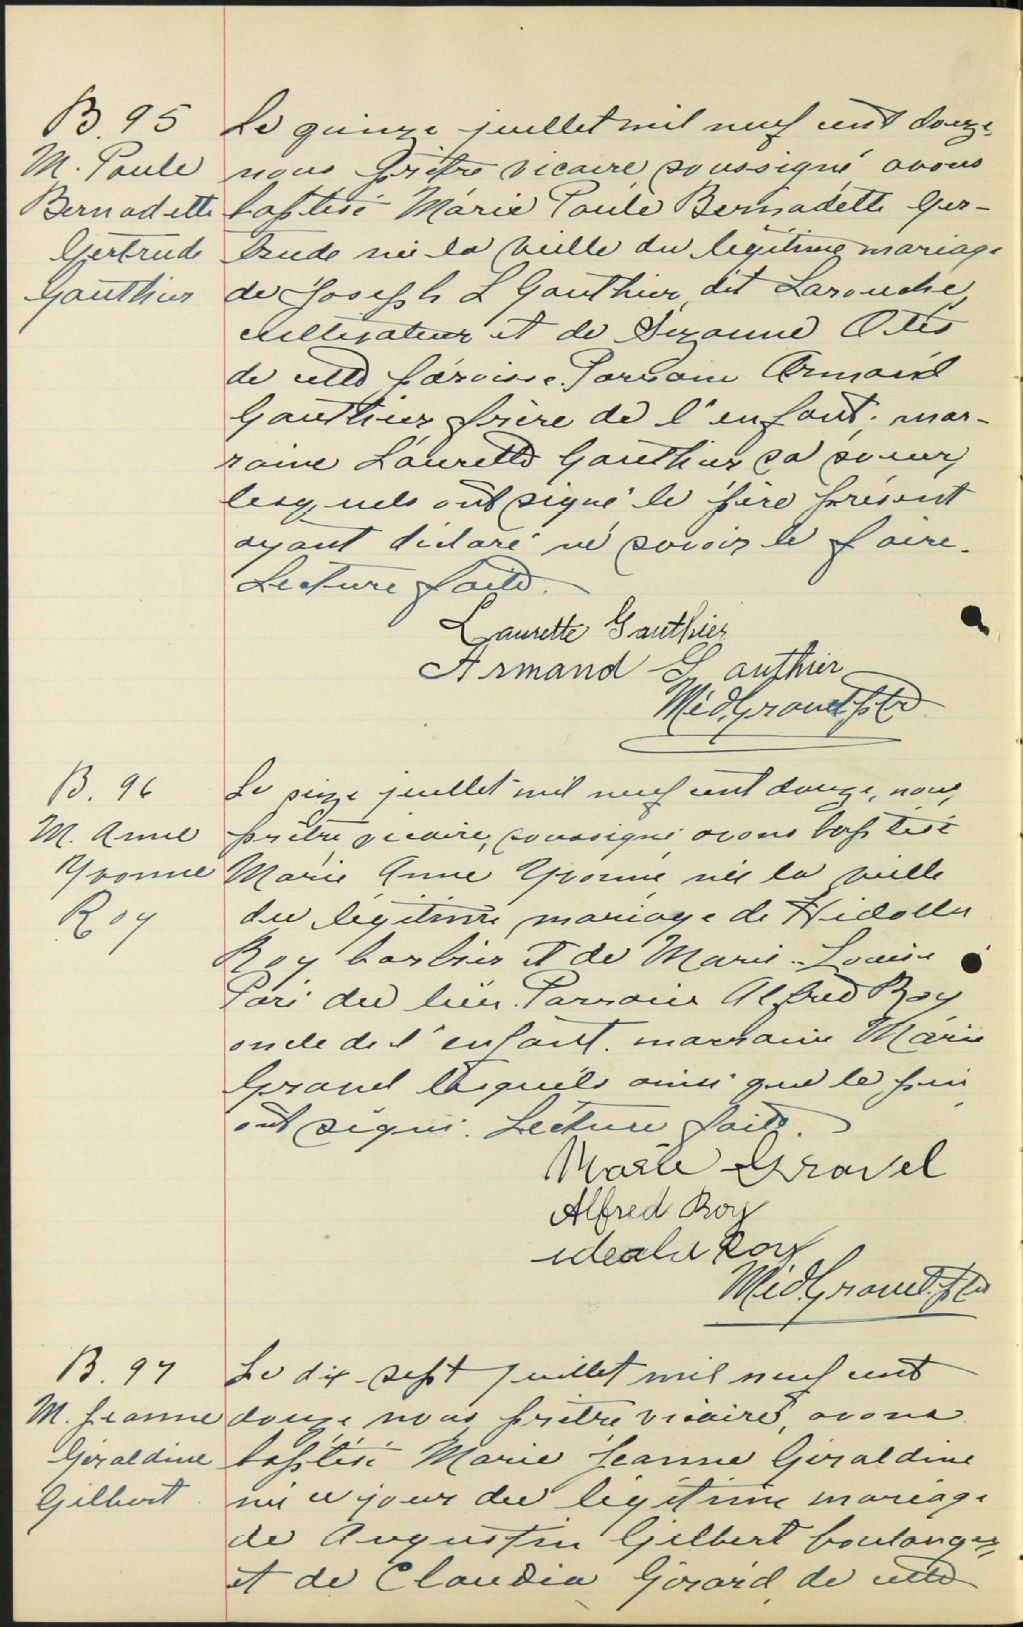 B. 95
M. Paule
Bernadette
Gertrude
Gauthier
Le quinze juillet mil neuf cent douze
nous prêtre vicaire soussigné avons
baptisé Marie Paule Bernadette Ger-
trude née la veille du légitime mariage
de Joseph L Gauthier dit Larouche,
cultivateur et de Suzanne Otis
de cette paroisse. Parrain Armand
Gauthier frère de l'enfant; mar-
raine Laurette Gauthier sa soeur,
lesquels ont signé le père présent
ayant déclaré ne savoir le faire.
Lecture faite.
Laurette Gauthier
Armand Gauthier
Méd. Gravel, ptre
B. 96
M. Anne
Yvonne
Roy
Le seize juillet mil neuf cent douze, nous,
prêtre vicaire, soussigné avons baptisé
Marie Anne Yvonne née la veille
du légitime mariage de
Roy barbier et de Marie-Louise
Paré du lieu. Parrain Alfred Roy
oncle de l'enfant. marraine Marie
Gravel lesquels ainsi que le père
ont signé. Lecture faite.
Marie Gravel
Alfred Roy
Roy
Méd. Gravel, ptre
B. 97
M. Jeanne
Géraldine
Gilbert
Le dix-sept juillet mil neuf cent
douze, nous prêtre vicaire, avons
baptisé Marie Jeanne Géraldine
née ce jour du légitime mariage
de Augustin Gilbert boulanger,
et de Claudia Girard, de cette